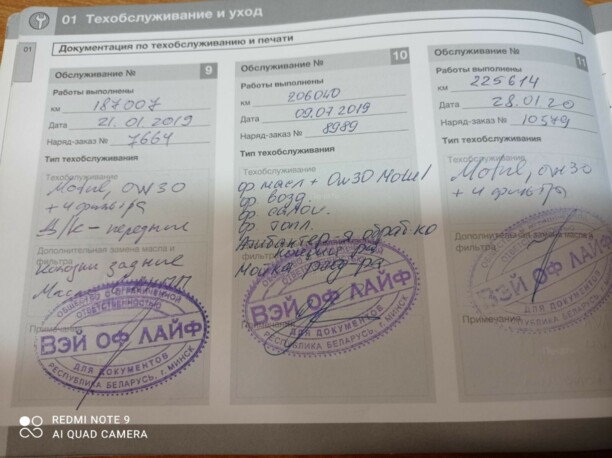 01 Техобслуживание и уход
01
Документация по техобслуживанию и печати
Обслуживание № 9
Работы выполнены
км 187007
Дата 21.01.2019
Наряд-заказ № 7664
Тип техобслуживания
Техобслуживание
Motul, 0w30
+ 4 фильтра
передние
Дополнительная замена масла и фильтра
Колодки задние
ОБЩЕСТВО С ОГРАНИЧЕННОЙ ОТВЕТСТВЕННОСТЬЮ
ВЭЙ ОФ ЛАЙФ
ДЛЯ ДОКУМЕНТОВ
РЕСПУБЛИКА БЕЛАРУСЬ, г. МИНСК
Обслуживание № 10
Работы выполнены
км 206040
Дата 09.07.2019
Наряд-заказ № 8989
Тип техобслуживания
Техобслуживание
ф масл + 0w30 Motul
ф возд.
ф салон.
ф топл.
Мойка
ВЭЙ ОФ ЛАЙФ
ДЛЯ ДОКУМЕНТОВ
РЕСПУБЛИКА БЕЛАРУСЬ, г. МИНСК
Обслуживание № 11
Работы выполнены
км 225614
Дата 28.01.20
Наряд-заказ № 10579
Тип техобслуживания
Техобслуживание
Motul, 0w30
+ 4 фильтра
Дополнительная замена масла и фильтра
ВЭЙ ОФ ЛАЙФ
ДЛЯ ДОКУМЕНТОВ
РЕСПУБЛИКА БЕЛАРУСЬ, г. МИНСК
Примечания
REDMI NOTE 9
AI QUAD CAMERA